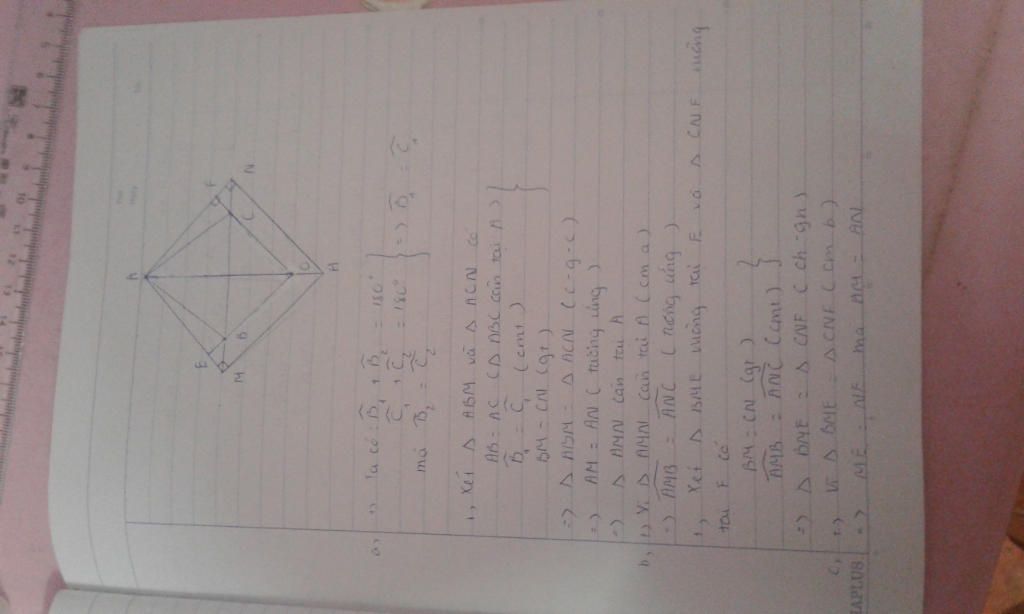 A
E
F
M
B
C
N
O
H
a, 1, Ta có: B̂₁ + B̂₂ = 180°
Ĉ₁ + Ĉ₂ = 180°
mà B̂₂ = Ĉ₂ } => B̂₁ = Ĉ₁
1, Xét Δ ABM và Δ ACN có
AB = AC (Δ ABC cân tại A)
B̂₁ = Ĉ₁ (cmt)
BM = CN (gt)
=> Δ ABM = Δ ACN (c-g-c)
=> AM = AN (tương ứng)
=> Δ AMN cân tại A
b, 1, Vì Δ AMN cân tại A (cm a)
=> AMB = ANC (tương ứng)
1, Xét Δ BME vuông tại E và Δ CNF vuông
tại F có
BM = CN (gt)
AMB = ANC (cmt)
=> Δ BME = Δ CNF (ch-gn)
c, 1, Vì Δ BME = Δ CNF (cm b)
=> ME = NF mà AM = AN